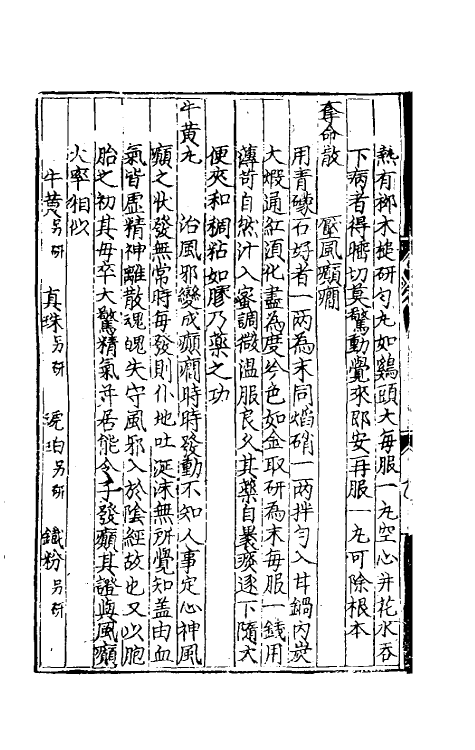 熱有柳木槌研勻丸如鷄頭大每服一丸空心井花水吞
下病者得睡切莫驚動覺來即安再服一丸可除根本
奪命散　壓風癲癇
用青礞石好者一兩為末同焰硝一兩拌勻入甘鍋內炭
大煅通紅湏化盡為度兮色如金取研為末每服一錢用
薄苛自然汁入蜜調微溫服良久其藥自裹痰逐下隨大
便夾和稠粘如膠乃藥之功
牛黄丸　治風邪變成癲癇時時發動不知人事定心神風
癲之狀發無常時每發則仆地吐涎沫無所覺知盖由血
氣皆虛精神離散魂魄失守風邪入於陰經故也又以胞
胎之初其母卒大驚精氣并居能令子發癲其證與風癲
大率相似
牛黄另研　真珠另研　琥珀另研　鐵粉另研